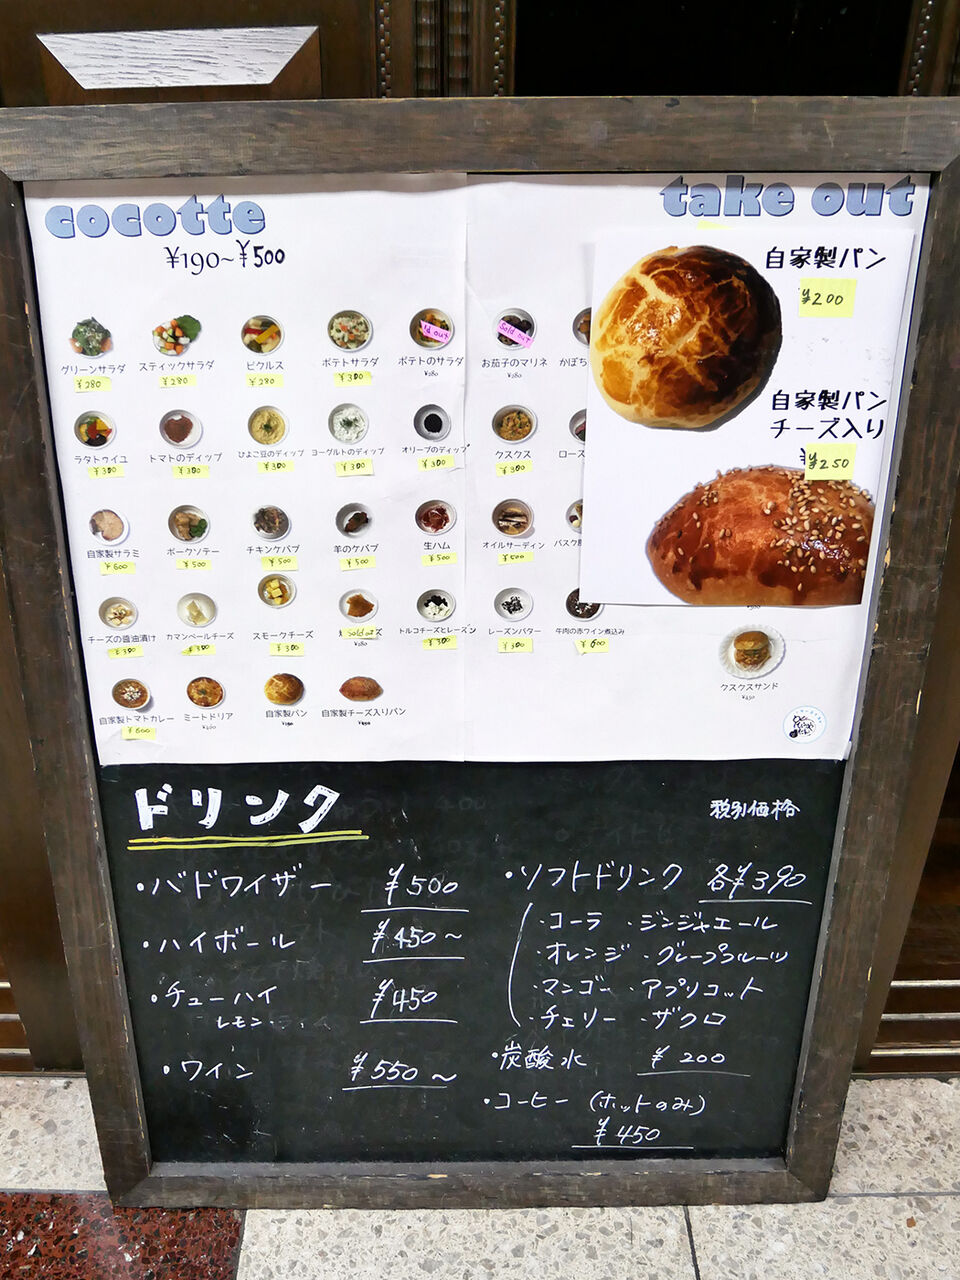 cocotte
¥190~¥500
take out
自家製パン
¥200
自家製パン
チーズ入り
¥250
グリーンサラダ スティックサラダ ピクルス ポテトサラダ ポテトのサラダ お茄子のマリネ かぼち
¥280 ¥280 ¥280 ¥300 ld out ¥280 Sold out ¥280
ラタトゥイユ トマトのディップ ひよこ豆のディップ ヨーグルトのディップ オリーブのディップ クスクス ロース
¥300 ¥300 ¥300 ¥300 ¥300 ¥300
自家製サラミ ポークソテー チキンケバブ 羊のケバブ 生ハム オイルサーディン バスク
¥600 ¥500 ¥500 ¥500 ¥500 ¥500
チーズの醤油漬け カマンベールチーズ スモークチーズ トルコチーズとレーズン レーズンバター 牛肉の赤ワイン煮込み
¥300 ¥300 ¥300 sold out ¥280 ¥300 ¥300 ¥600
クスクスサンド
自家製トマトカレー ミートドリア 自家製パン 自家製チーズ入りパン
¥600
ドリンク
税別価格
・バドワイザー ¥500
・ハイボール ¥450~
・チューハイ ¥450
レモン
・ワイン ¥550~
・ソフトドリンク 各¥390
・コーラ ・ジンジャエール
・オレンジ ・グレープフルーツ
・マンゴー ・アプリコット
・チェリー ・ザクロ
・炭酸水 ¥200
・コーヒー (ホットのみ)
¥450